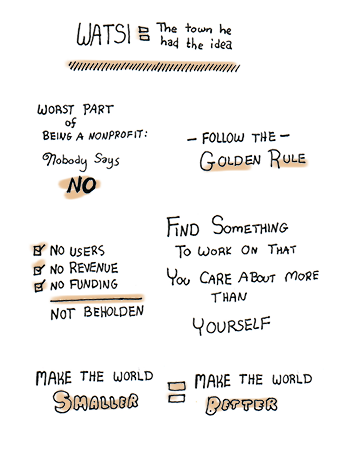 WATSI = The town he
had the idea
WORST PART
of
BEING A NONPROFIT:
Nobody Says
NO
- FOLLOW THE -
GOLDEN RULE
NO USERS
NO REVENUE
NO FUNDING
NOT BEHOLDEN
FIND SOMETHING
TO WORK ON THAT
YOU CARE ABOUT MORE
THAN
YOURSELF
MAKE THE WORLD
SMALLER
=
MAKE THE WORLD
BETTER